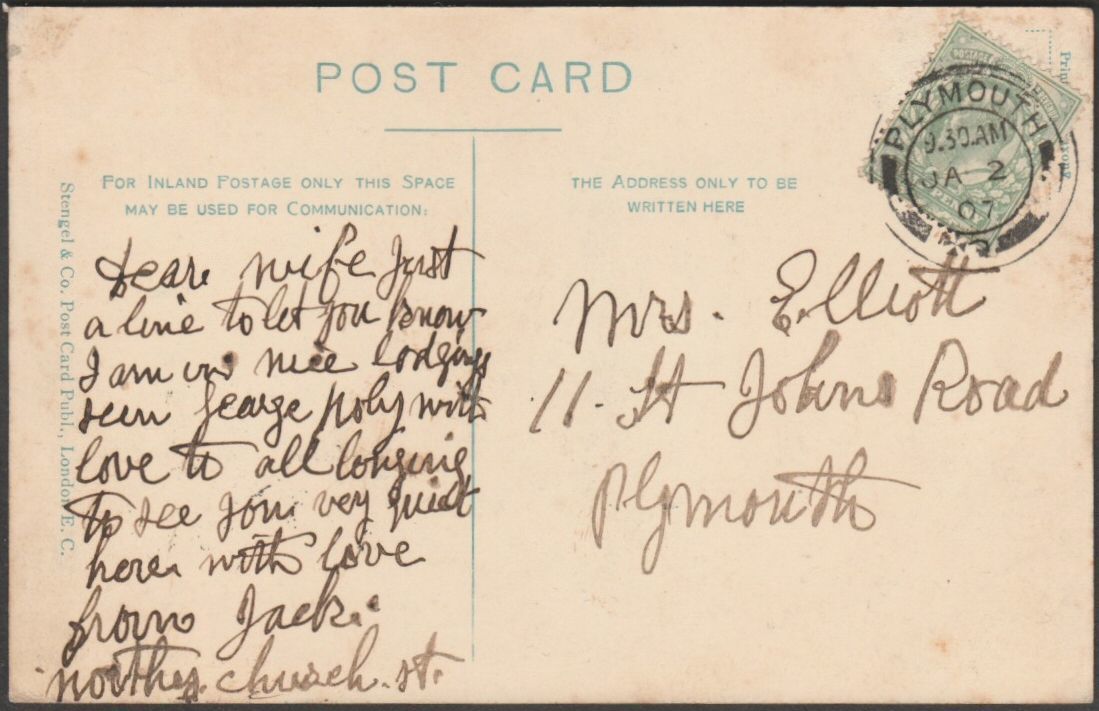 POST CARD
FOR INLAND POSTAGE ONLY THIS SPACE
MAY BE USED FOR COMMUNICATION:
THE ADDRESS ONLY TO BE
WRITTEN HERE
Stengel & Co. Post Card Publ., London E. C.
PLYMOUTH
9.30.AM
JA 2
07
Dear wife Just
a line to let you know
I am in nice lodgings
seen George Poly with
love to all longing
to see you very quiet
here with love
from Jack.
church. st.
Mrs. Elliott
11. St Johns Road
Plymouth